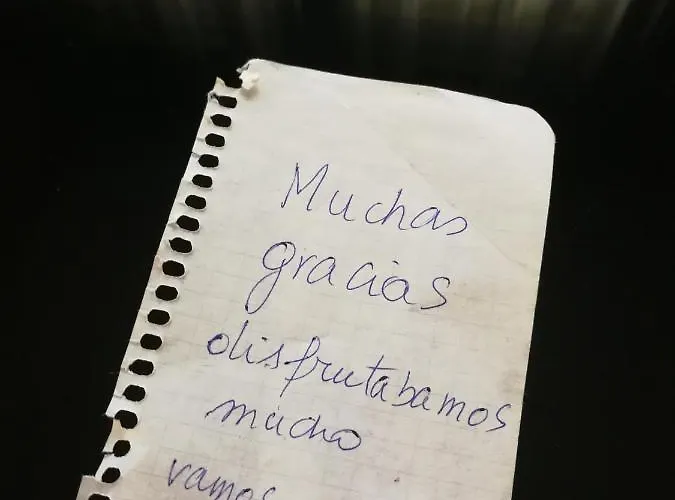 Muchas
gracias
disfrutabamos
mucho
vamos